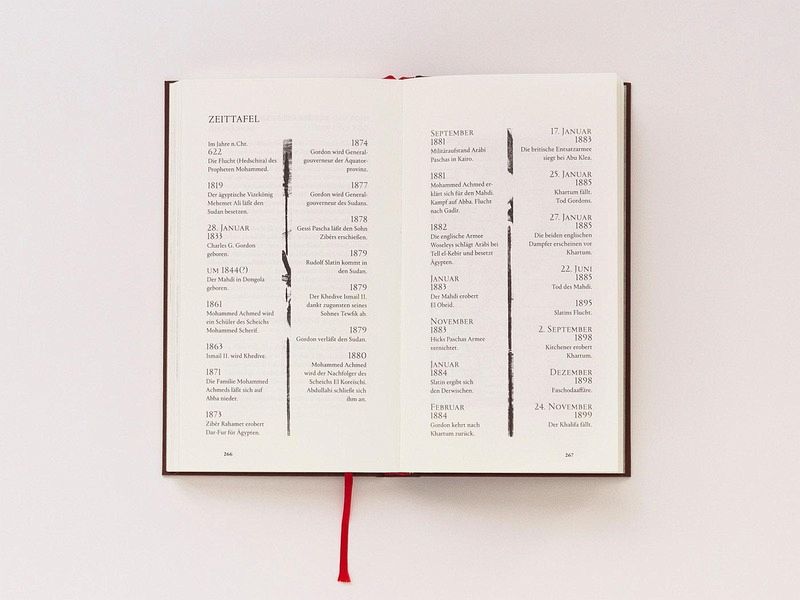 ZEITTAFEL
Im Jahre n. Chr.
622
Die Flucht (Hedschira) des
Propheten Mohammed.
1819
Der ägyptische Vizekönig
Mehemet Ali läßt den
Sudan besetzen.
28. JANUAR
1833
Charles G. Gordon
geboren.
UM 1844(?)
Der Mahdi in Dongola
geboren.
1861
Mohammed Achmed wird
ein Schüler des Scheichs
Mohammed Scherif.
1863
Ismail II. wird Khedive.
1871
Die Familie Mohammed
Achmeds läßt sich auf
Abba nieder.
1873
Zibêr Rahamet erobert
Dar-Fur für Ägypten.
1874
Gordon wird General-
gouverneur der Äquator-
provinz.
1877
Gordon wird General-
gouverneur des Sudans.
1878
Gessi Pascha läßt den Sohn
Zibêrs erschießen.
1879
Rudolf Slatin kommt in
den Sudan.
1879
Der Khedive Ismail II.
dankt zugunsten seines
Sohnes Tewfik ab.
1879
Gordon verläßt den Sudan.
1880
Mohammed Achmed
wird der Nachfolger des
Scheichs El Koreischi.
Abdullahi schließt sich
ihm an.
266
SEPTEMBER
1881
Militäraufstand Arâbi
Paschas in Kairo.
1881
Mohammed Achmed er-
klärt sich für den Mahdi.
Kampf auf Abba. Flucht
nach Gadir.
1882
Die englische Armee
Woseleys schlägt Arâbi bei
Tell el-Kebir und besetzt
Ägypten.
JANUAR
1883
Der Mahdi erobert
El Obeid.
NOVEMBER
1883
Hicks Paschas Armee
vernichtet.
JANUAR
1884
Slatin ergibt sich
den Derwischen.
FEBRUAR
1884
Gordon kehrt nach
Khartum zurück.
17. JANUAR
1883
Die britische Entsatzarmee
siegt bei Abu Klea.
25. JANUAR
1885
Khartum fällt.
Tod Gordons.
27. JANUAR
1885
Die beiden englischen
Dampfer erscheinen vor
Khartum.
22. JUNI
1885
Tod des Mahdi.
1895
Slatins Flucht.
2. SEPTEMBER
1898
Kirchener erobert
Khartum.
DEZEMBER
1898
Faschodaaffäre.
24. NOVEMBER
1899
Der Khalifa fällt.
267